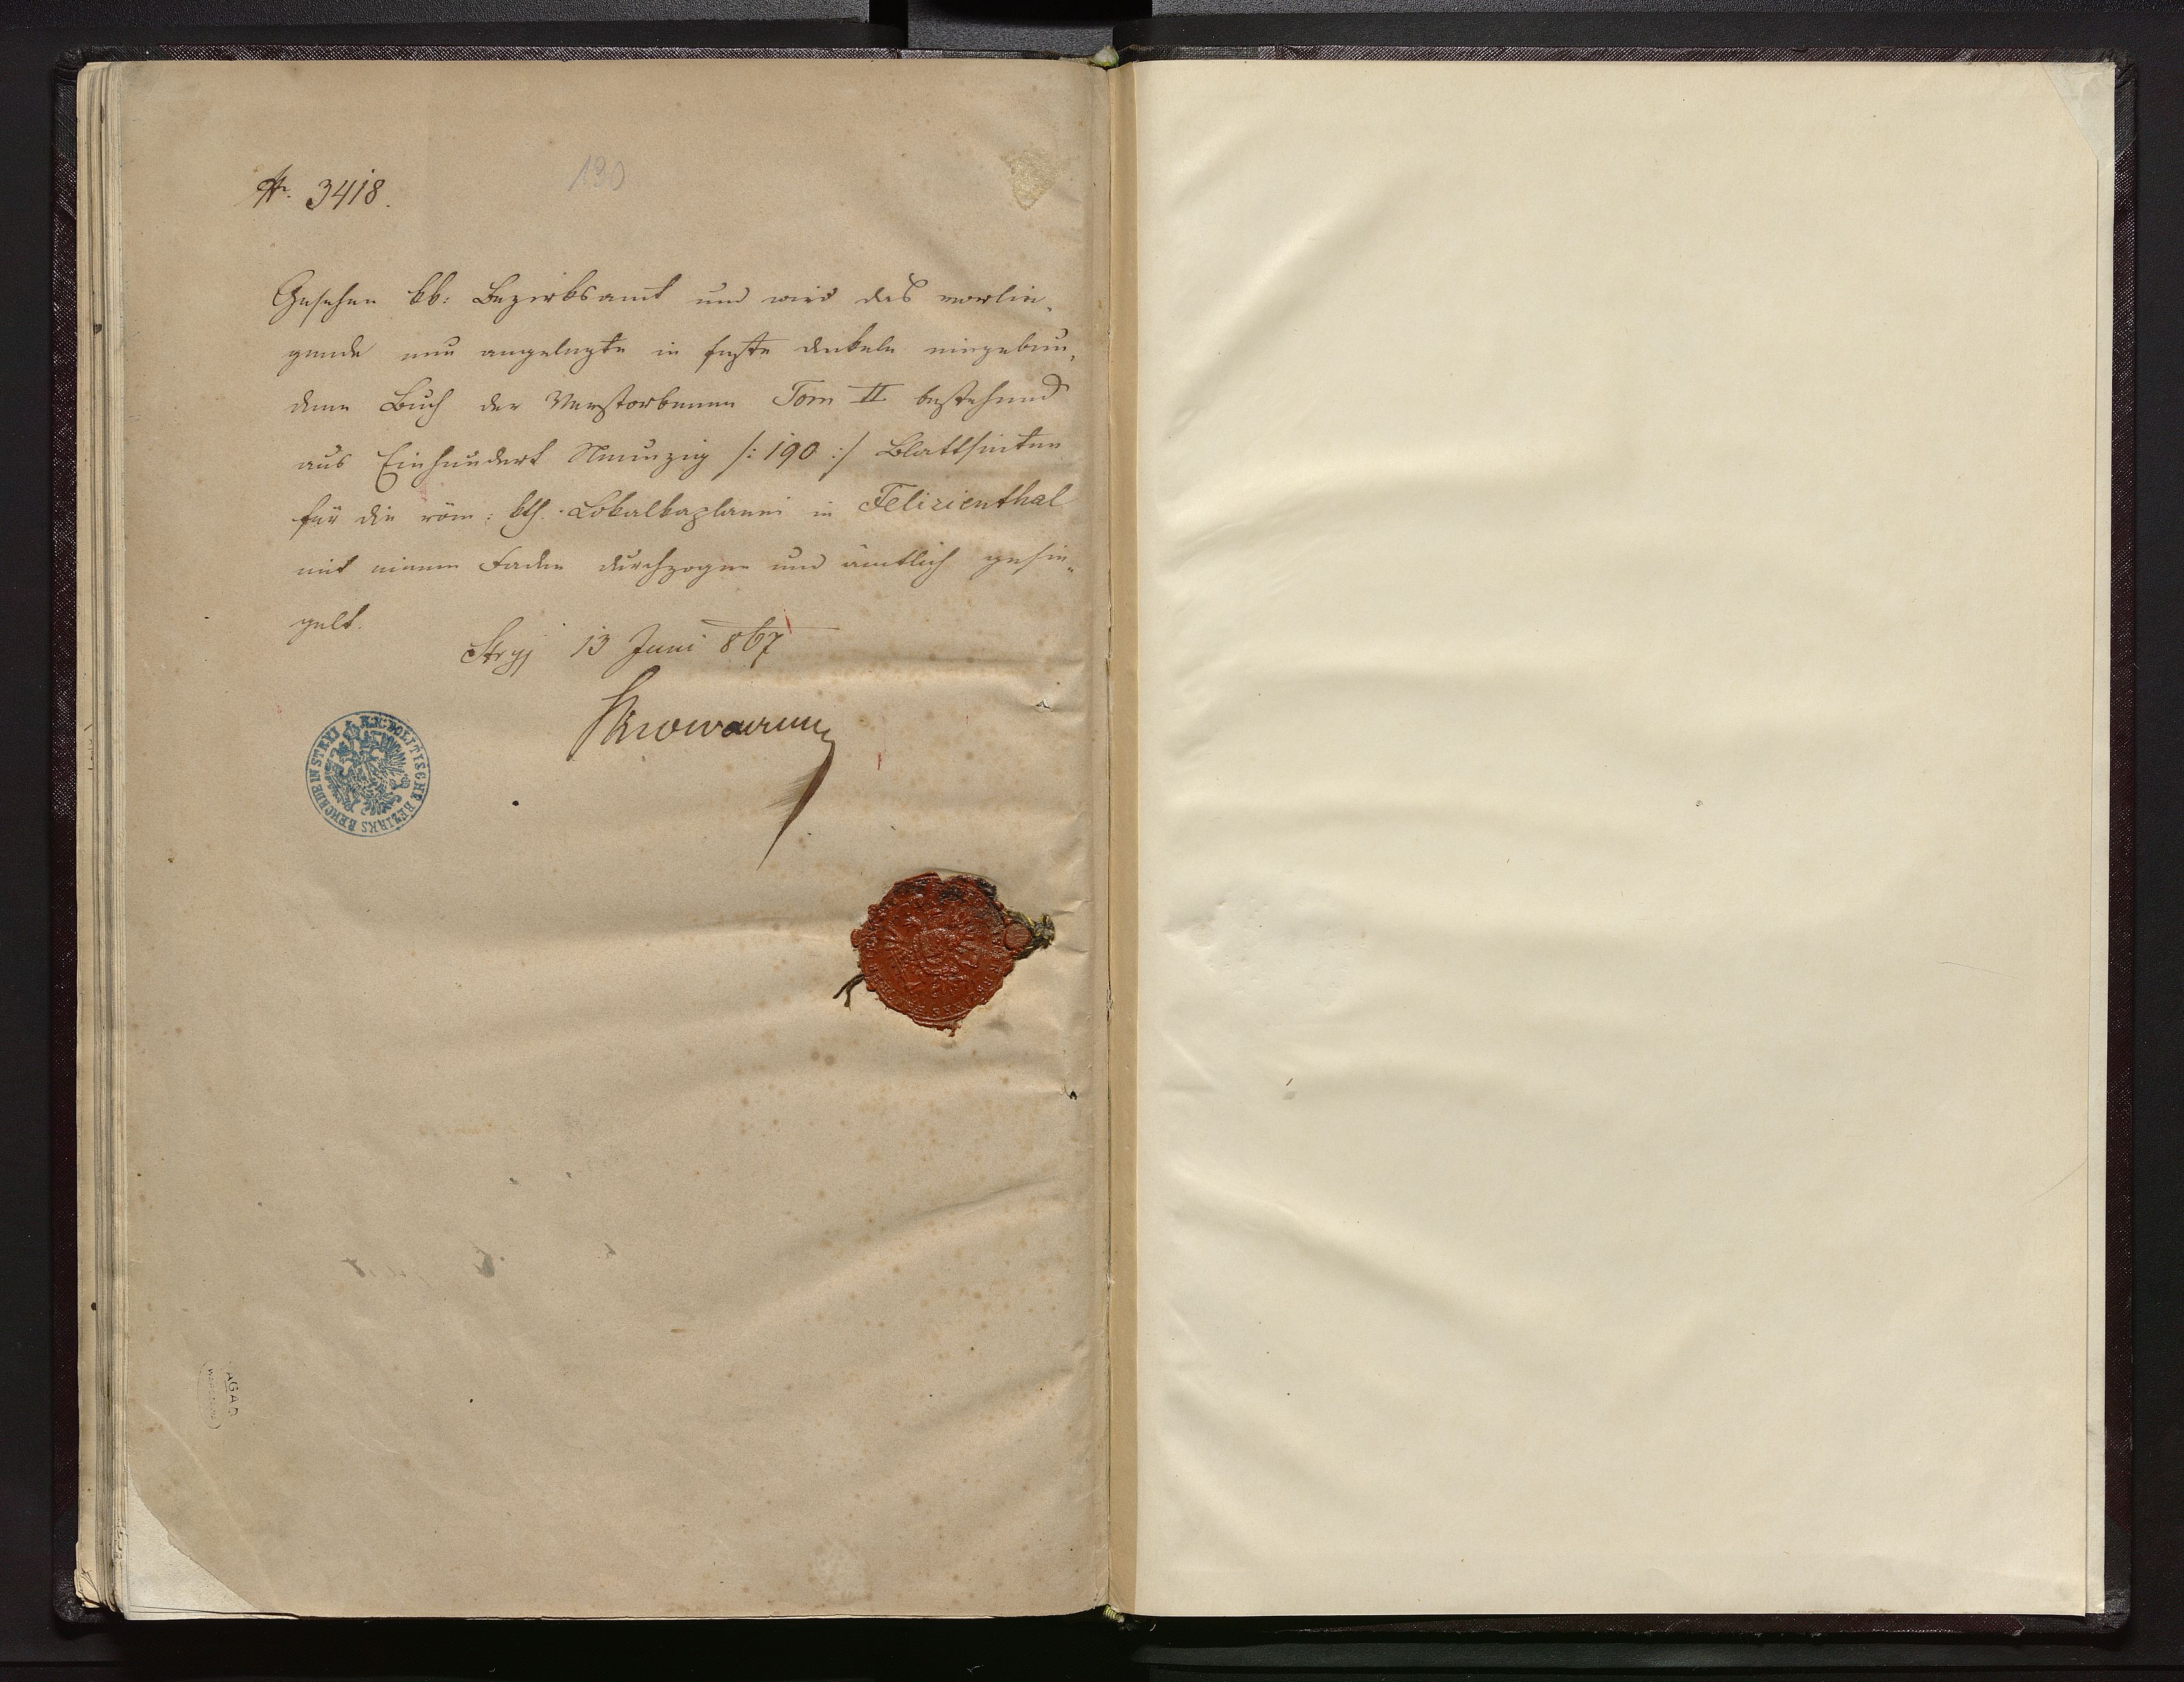 Nr. 3418.
190
Gesehen kk: Bezirksamt und wird das vorlie-
gende neu angelegte in feste Deckeln eingebun-
dene Buch der Verstorbenen Tom II bestehend
aus Einhundert Neunzig /: 190 :/ Blattseiten
für die röm: kth. Lokalkaplanei in Felizienthal
mit einem Faden durchzogen und ämtlich gesie-
gelt.
Stryj 13 Juni 867
K.K. POLITISCHE BEZIRKS BEHÖRDE IN STRYJ
AGAD
(WARSZAWA)